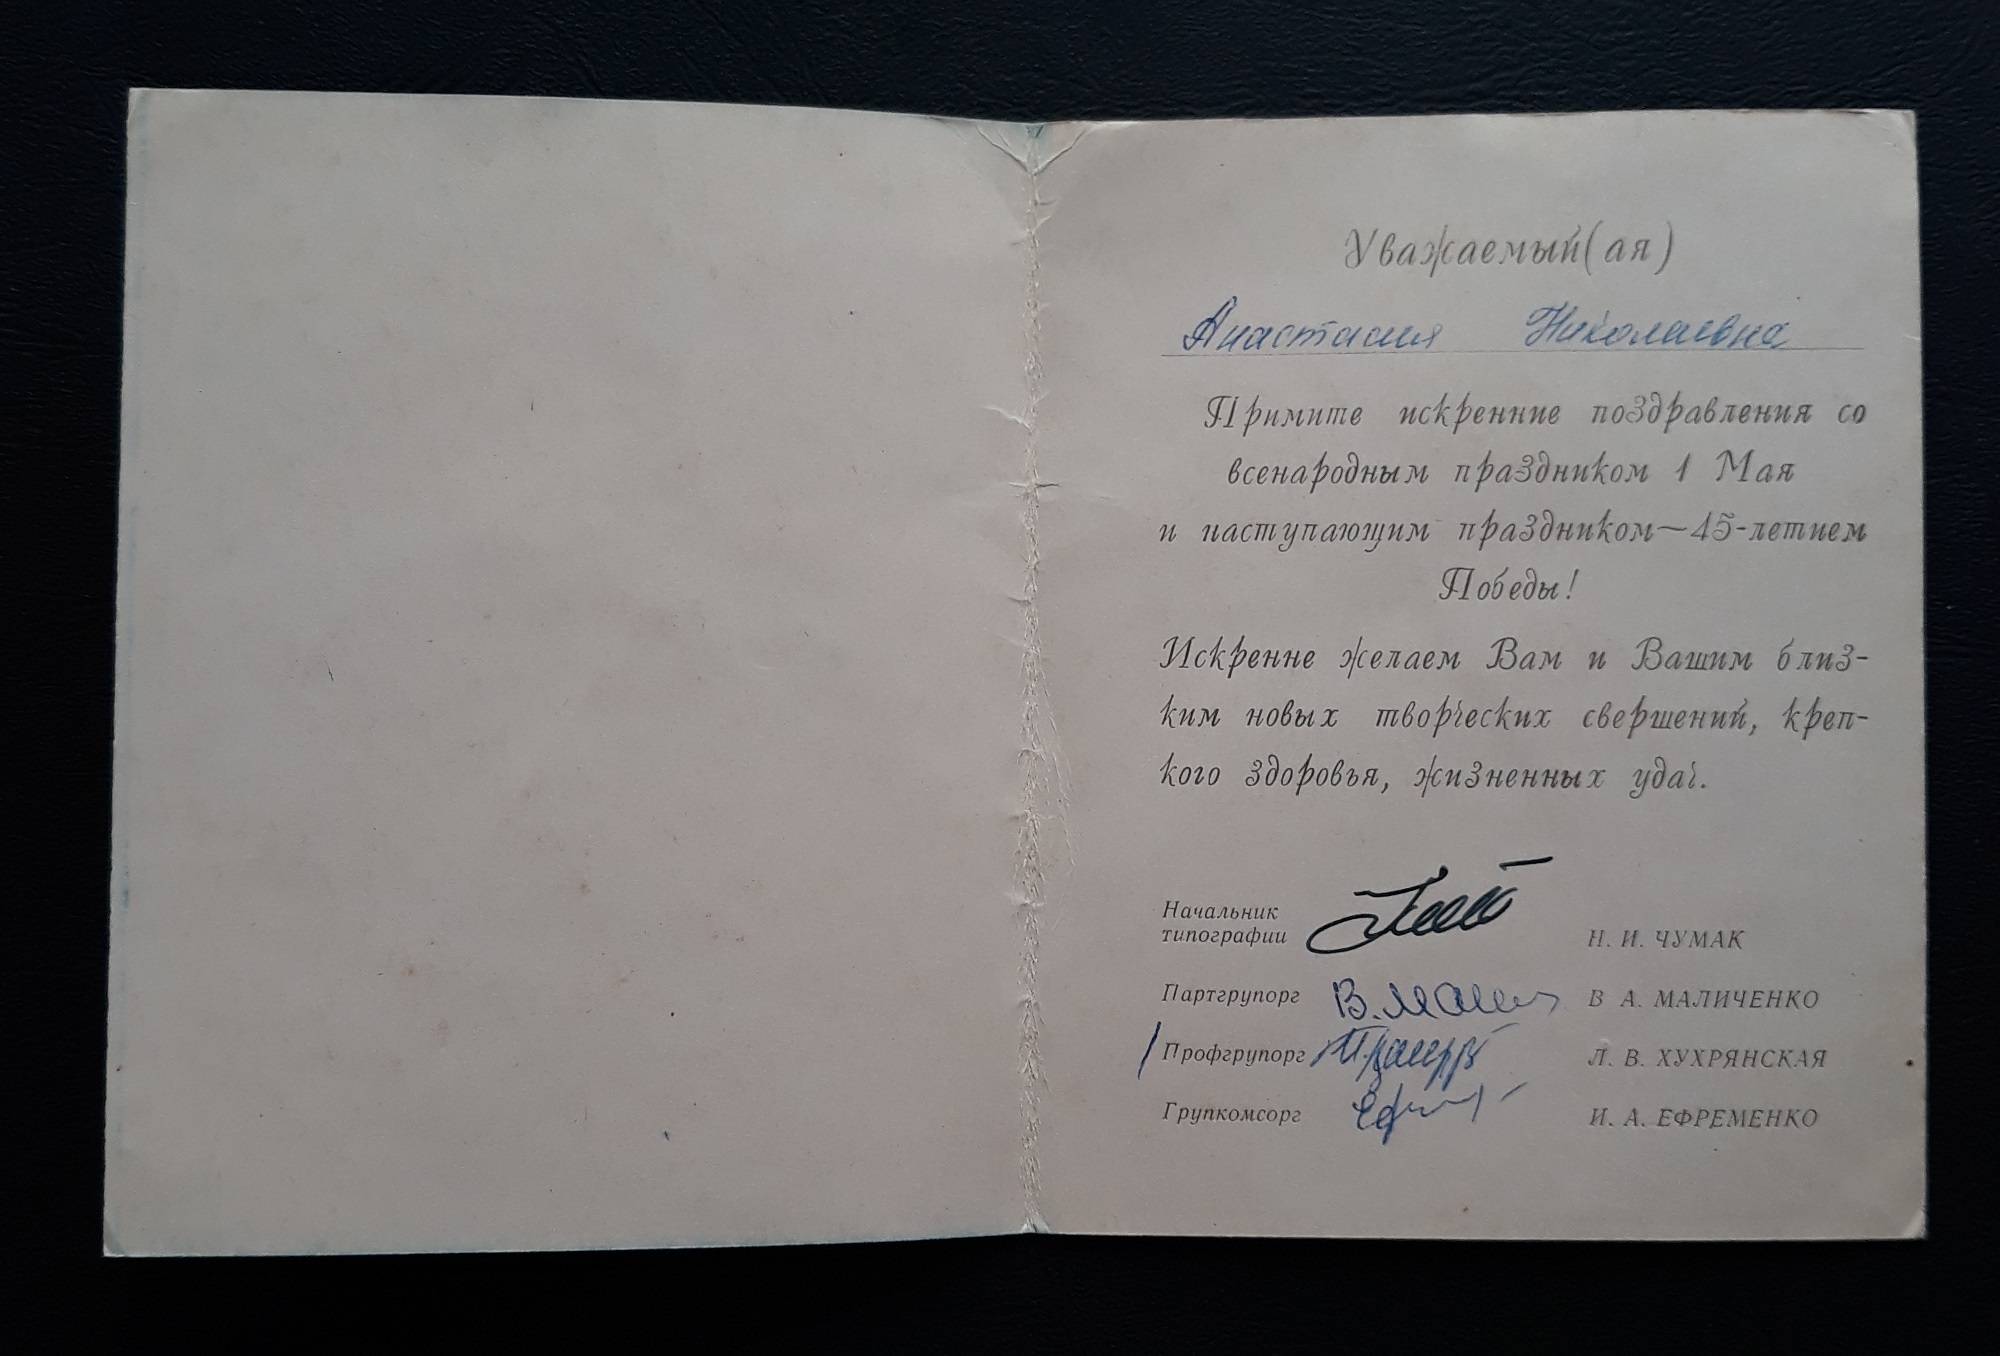 Уважаемый(ая)
Анастасия Николаевна
Примите искренние поздравления со
всенародным праздником 1 Мая
и наступающим праздником—45-летием
Победы!
Искренне желаем Вам и Вашим близ-
ким новых творческих свершений, креп-
кого здоровья, жизненных удач.
Начальник
типографии Н. И. ЧУМАК
Партгрупорг В А. МАЛИЧЕНКО
Профгрупорг Л. В. ХУХРЯНСКАЯ
Групкомсорг И. А. ЕФРЕМЕНКО